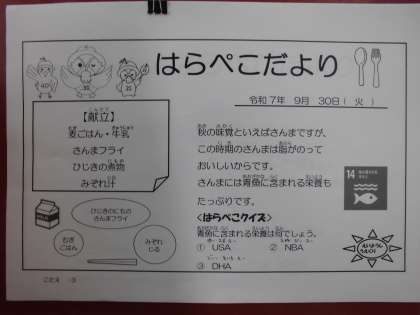 はらぺこだより
令和7年 9月 30日( 火 )
【献立】
麦ごはん・牛乳
さんまフライ
ひじきの煮物
みぞれ汁
秋の味覚といえばさんまですが、
この時期のさんまは脂がのって
おいしいからです。
さんまには青魚に含まれる栄養も
たっぷりです。
<はらぺこクイズ>
青魚に含まれる栄養は何でしょう。
① USA ② NBA
③ DHA
14
ひじきのにもの
さんまフライ
むぎ
ごはん
みぞれ
じる
こたえ ③